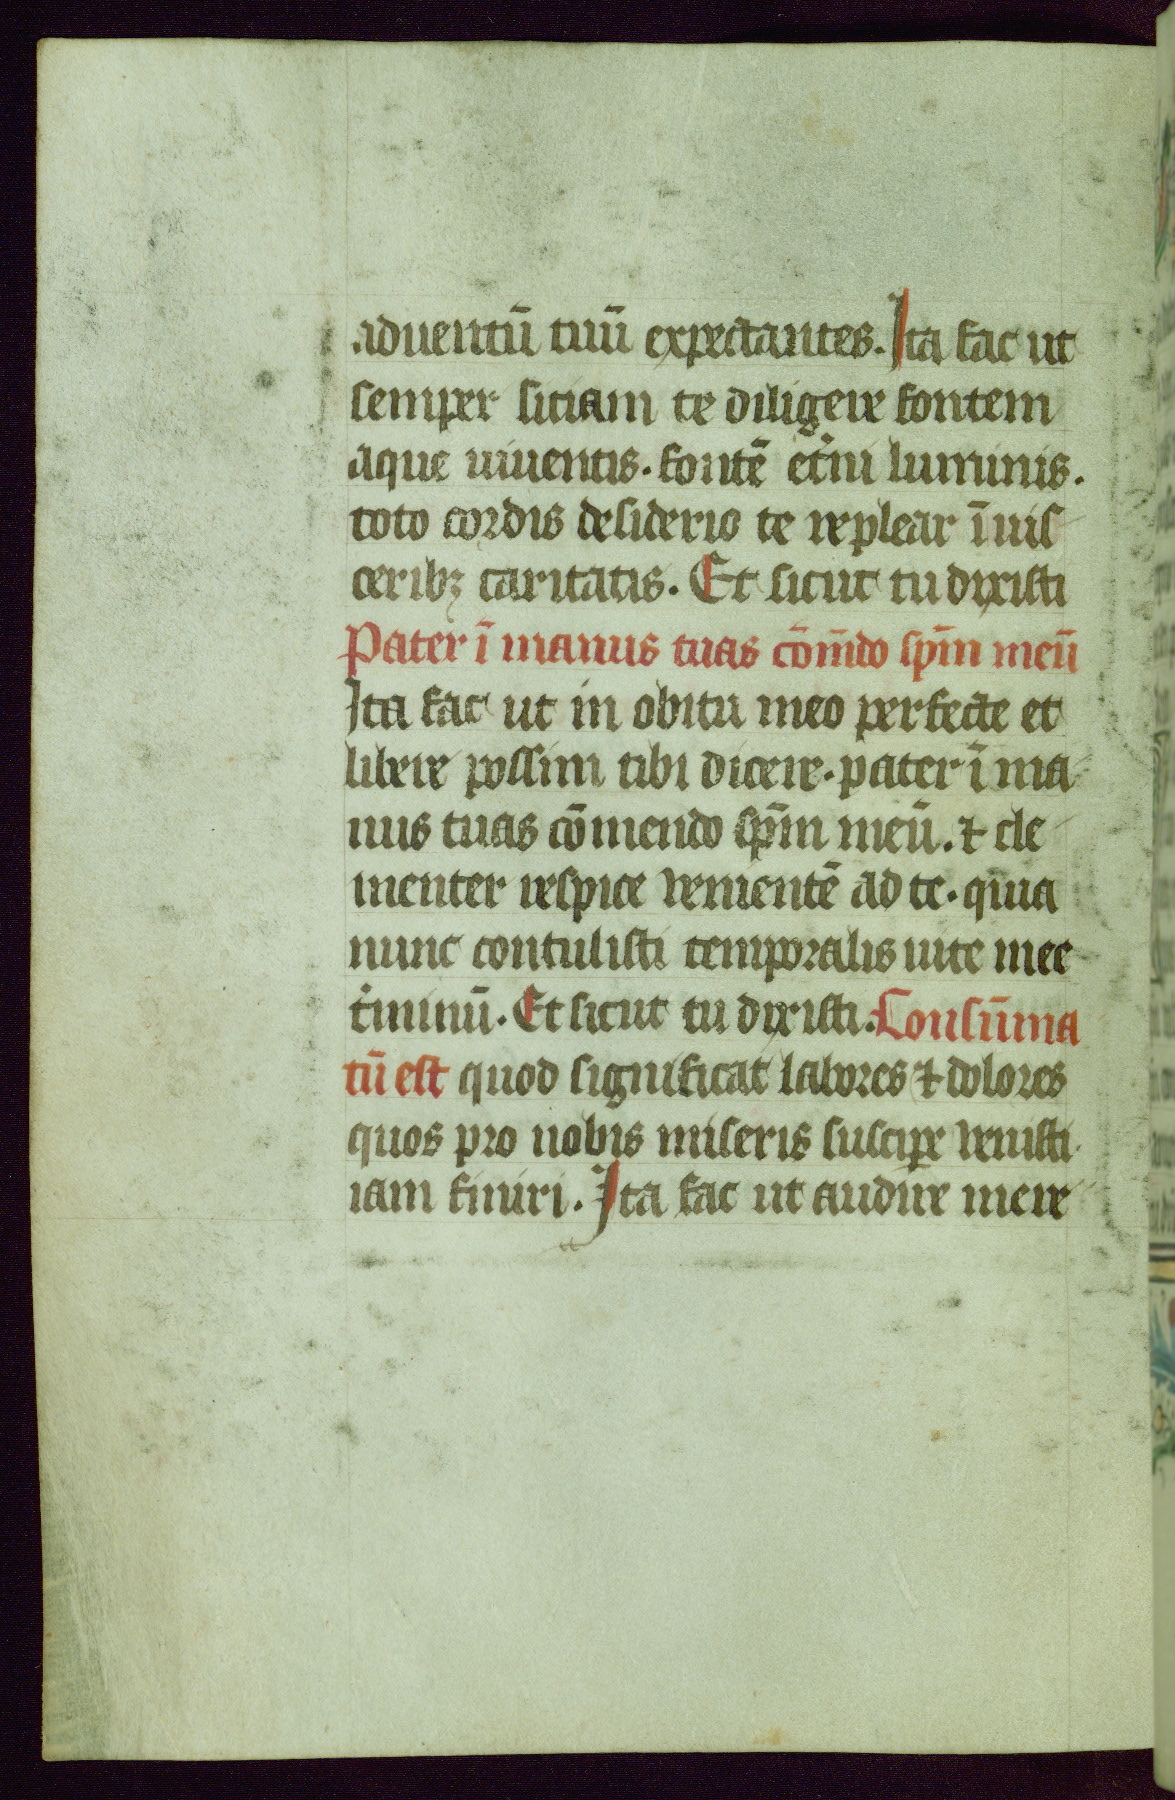 aduentū tuū expectantes. Ita fac ut
semper sitiam te diligere fontem
aque uiuentis. fontē et̄ni luminis.
toto cordis desiderio te replear ī uis
ceribꝫ caritatis. Et sicut tu dixisti
Pater ī manus tuas cōm̄do sp̄m meū
Ita fac ut in obitu meo perfecte et
libere possim tibi dicere. pater ī ma
nus tuas cōmendo sp̄m meū. ⁊ cle
menter respice venientē ad te. quia
nunc contulisti temporalis uite mee
t̄minū. Et sicut tu dixisti. Consūma
tū est quod significat labores ⁊ dolores
quos pro nobis miseris suscipe venisti
iam finiri. Ita fac ut audire mere